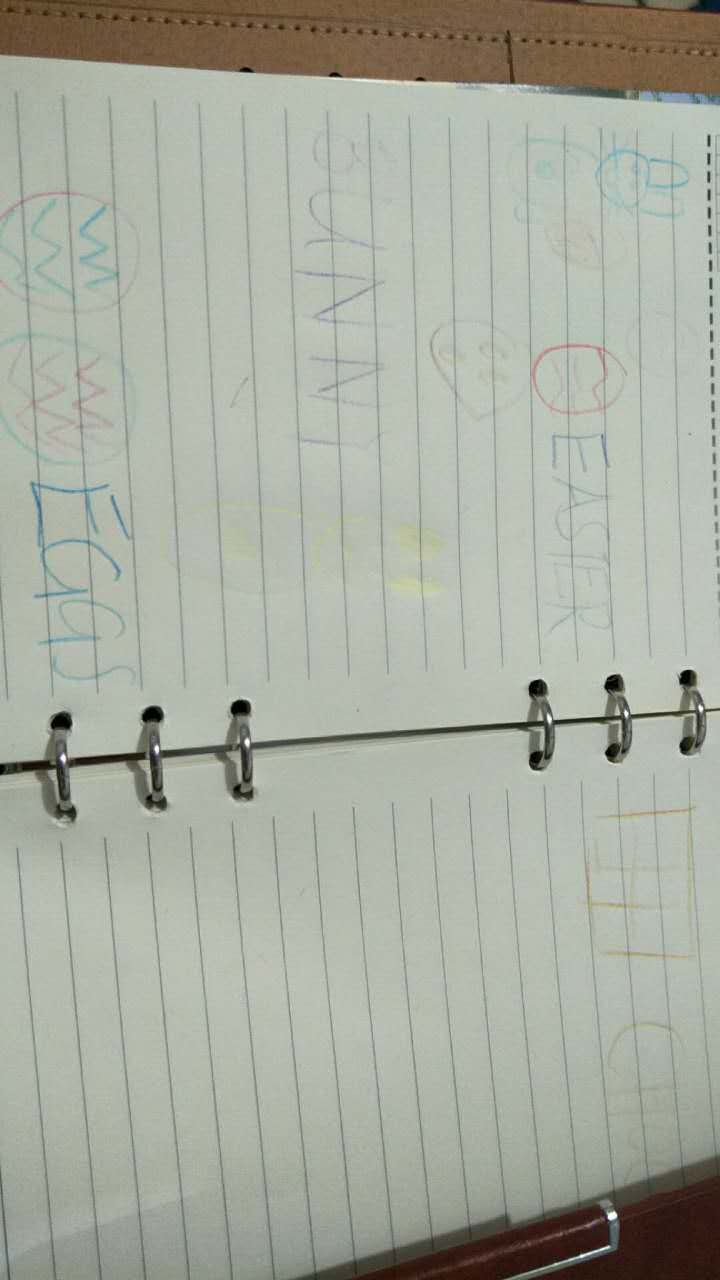 EASTER
BUNNY
EGGS